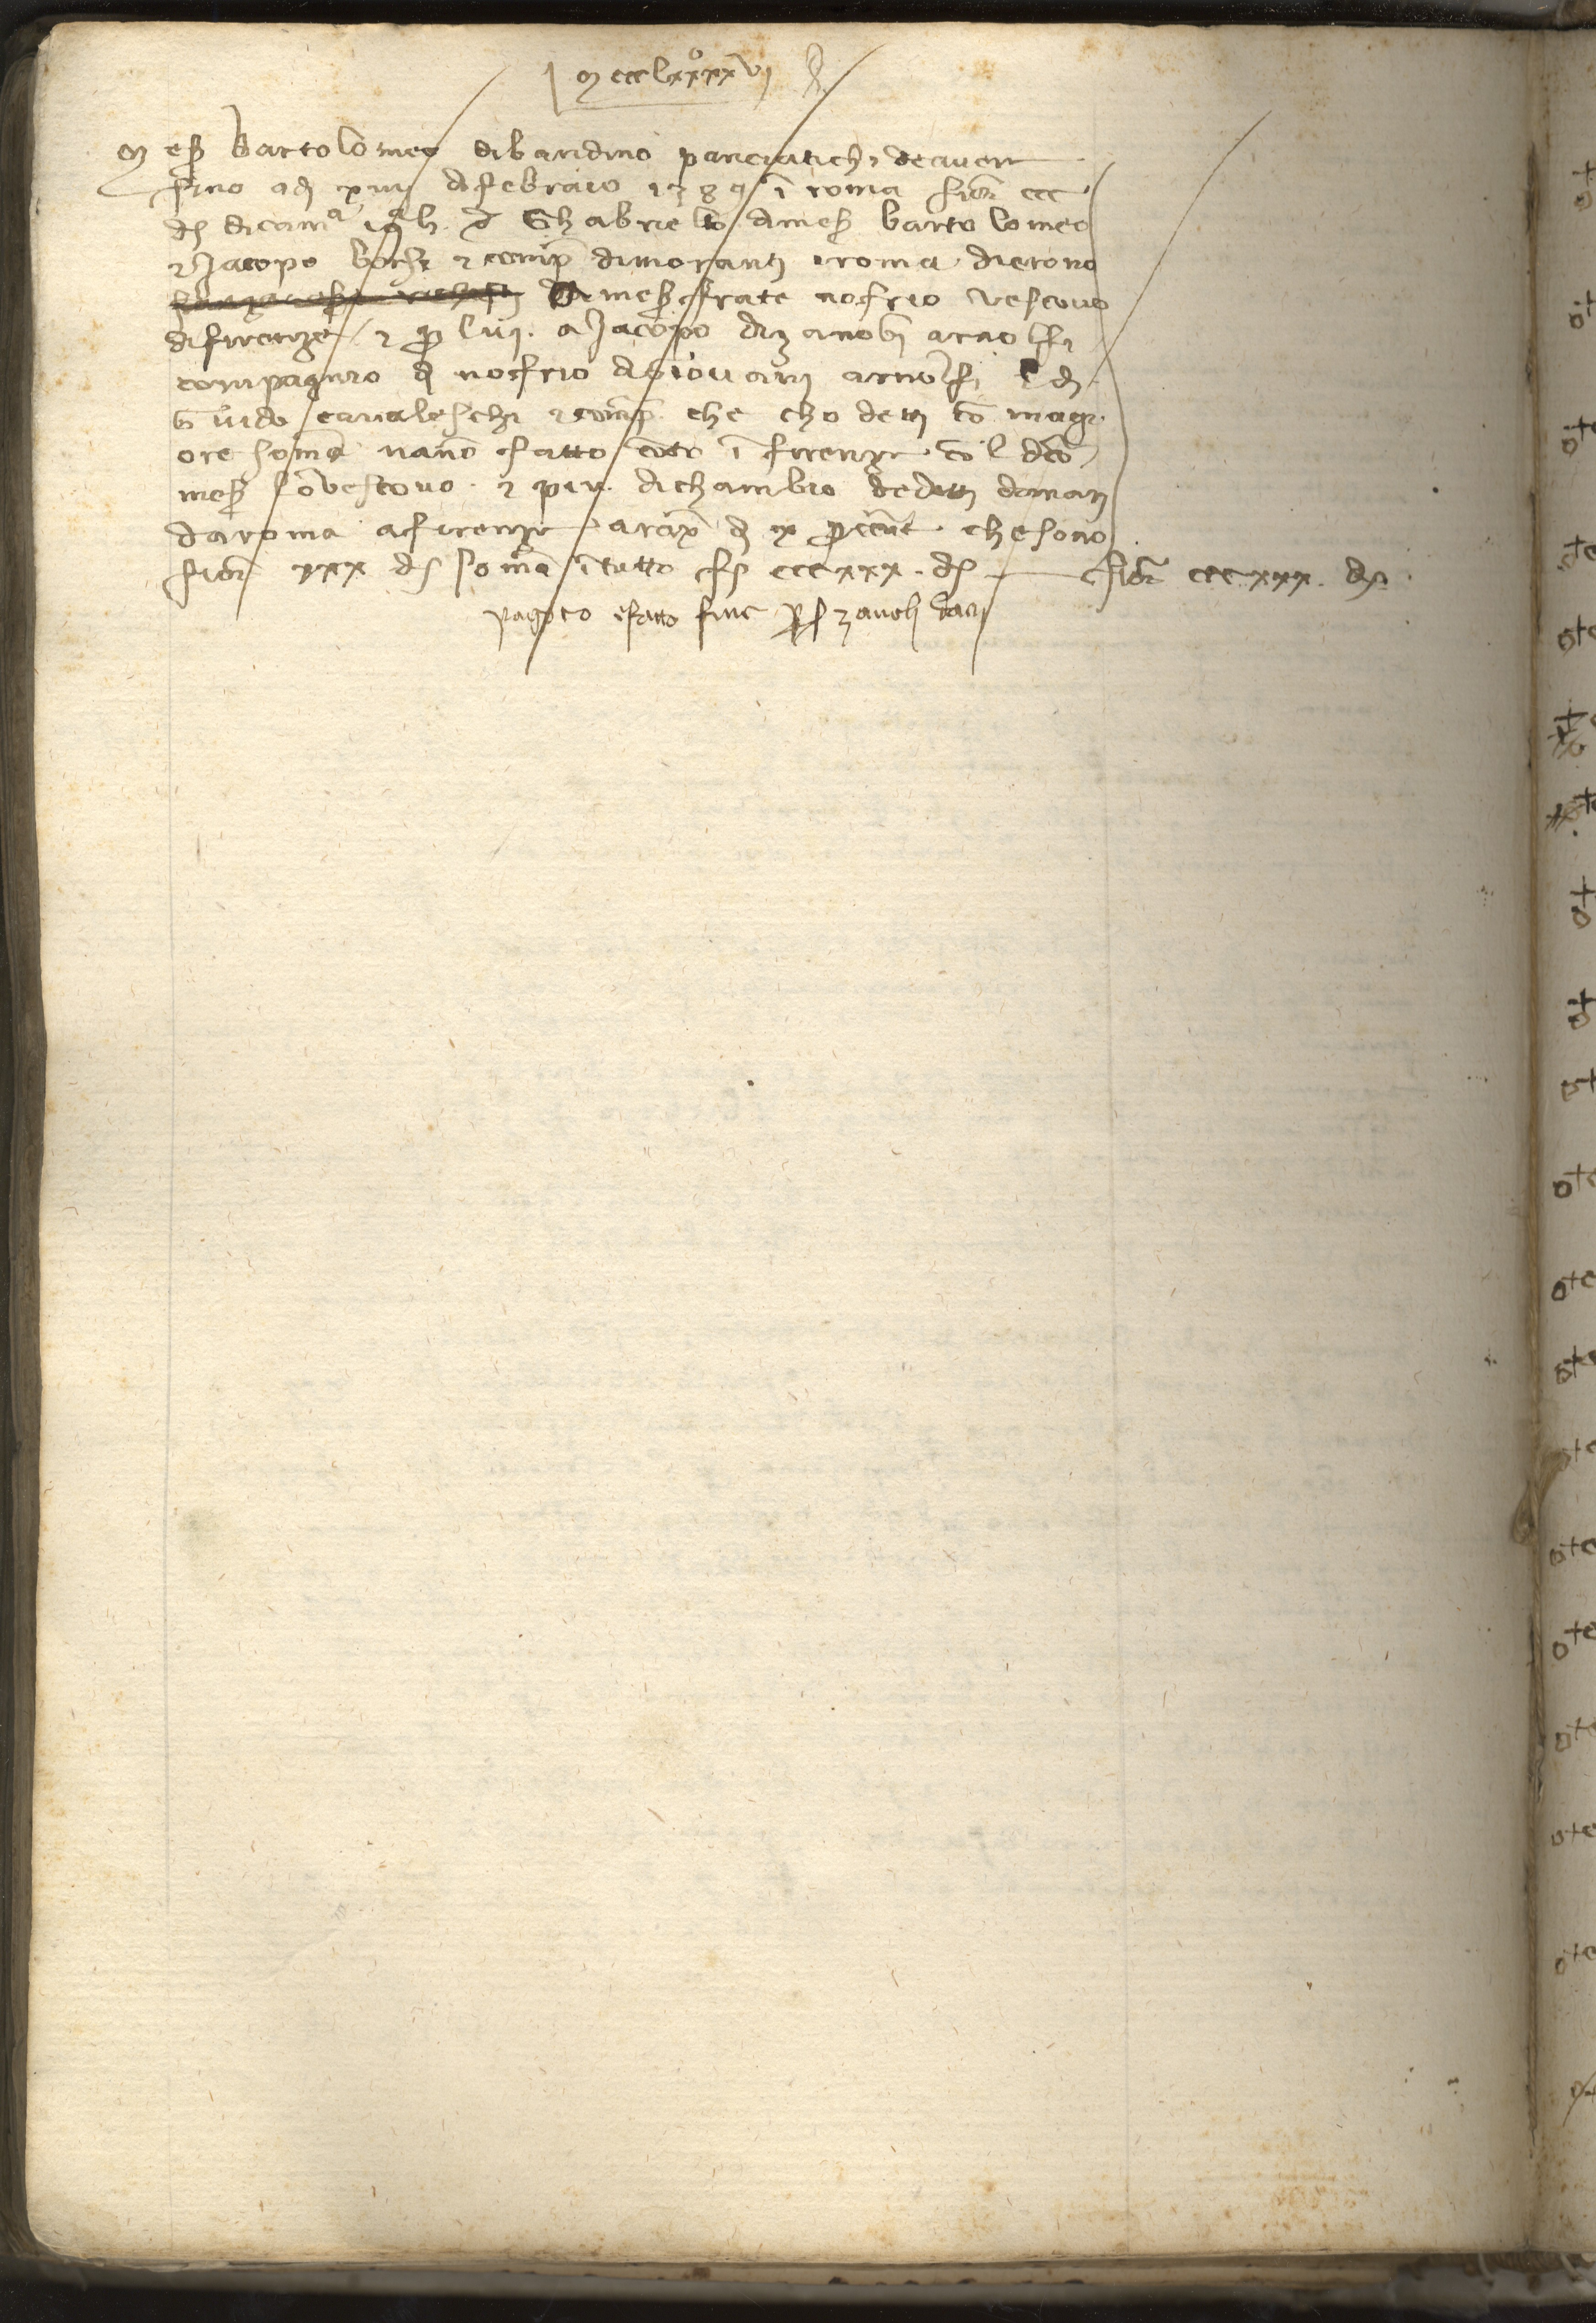 mccclxxxxvi
Mess bartolomeo dibandino panciatichi deavere
fino adi xiiii difebraio 1389 i roma fior ccc
ds dicama Ghabriello dimess bartolomeo
e Jacopo e comp dimoranti iroma dierono
a mess frate nofrio vescovo
difirenze e p lui a Jacopo dizanobi arnolfi
compagnio di nofrio digiovani arnolfi e di
Guido cavaleschi e comp che cho detti co magi
ore soma nano fatto coto i firenze col deto
mess lo vescovo e piu dichambio dedetti danari
daroma afirenze araxo di x p cento che sono
fior xxx ds soma i tutto fs cccxxx ds fior cccxxx ds
pagato efatto fine p s zanobi